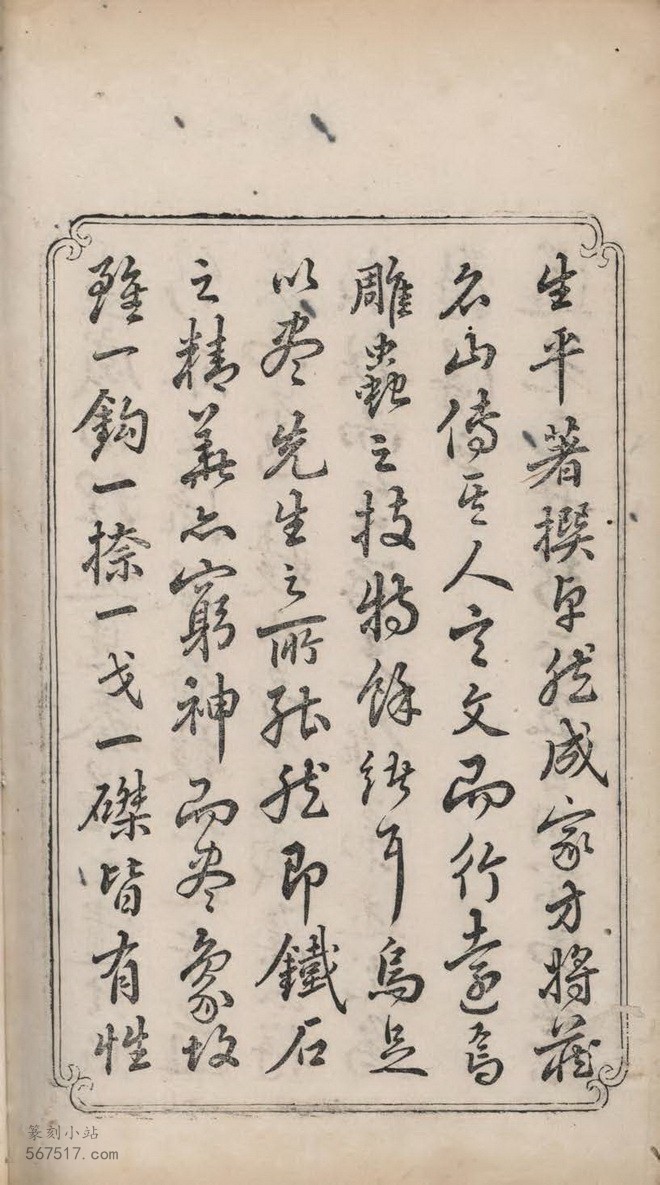 生平著撰卓然成家方將藏
名山傳其人言文而行遠焉
雕蟲之技特餘緒耳烏足
以盡先生之所能然即鐵石
之精義亦窮神而盡象故
雖一鉤一捺一戈一磔皆有性
篆刻小站
567517.com